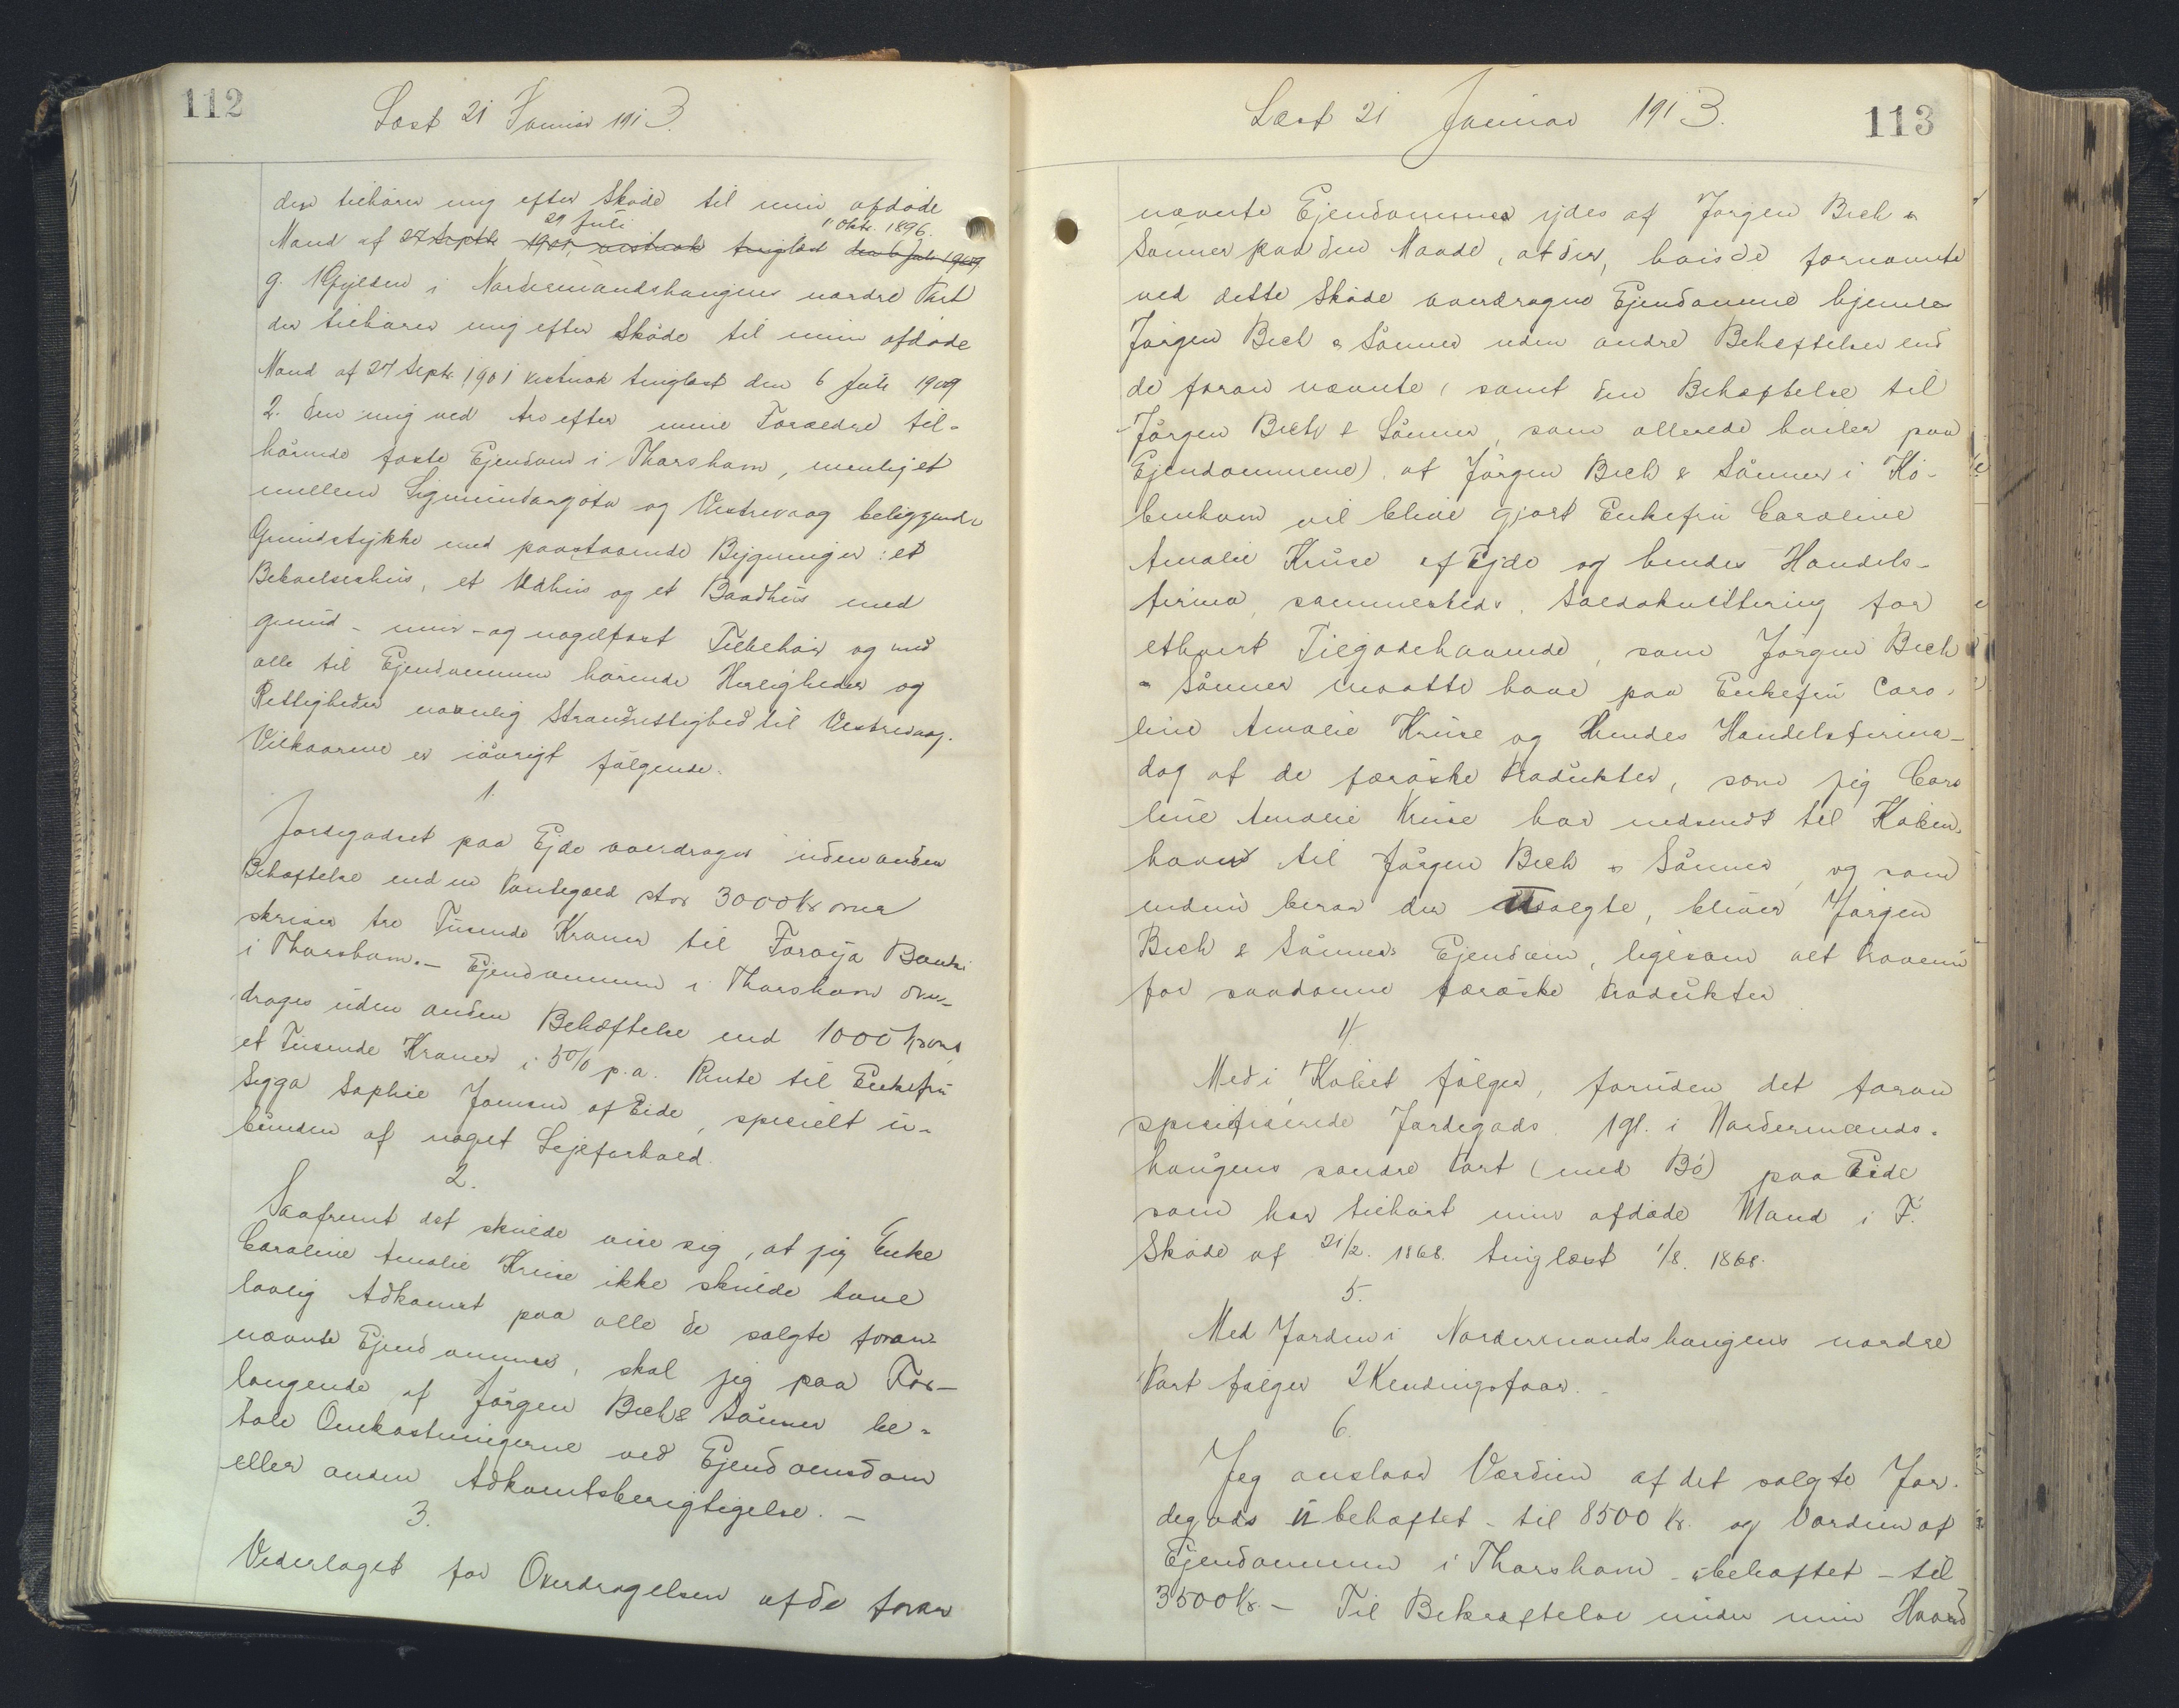 112
Læst 21 Januar 1913.
der tilhører mig efter Skøde til min afdøde
29 Juli 1 Oktr. 1896.
Mand af 27 Septb. 1901, vestnok tinglæst den 6 Juli 1909
g. 1 Gylden i Nordermandshaugens nordre Part
der tilhører mig efter Skøde til min afdøde
Mand af 27 Septr. 1901 vestnok tinglæst den 6 Juli 1909
2. den mig ved Arv efter mine Forældre til-
hørende faste Ejendom i Thorshavn, nemlig et
mellem Sigmundargøtu og Vestrevaag beliggende
Grundstykke med paastaaende Bygninger: et
Beboelseshus, et Udhus og et Baadhus med
grund- mur- og nagelfast Tilbehør og med
alle til Ejendommen hørende Herligheder og
Rettigheder navnlig Strandrettighed til Vestrevaag.
Vilkaarene er iøvrigt følgende.
1.
Jordegodset paa Ejde overdrages uden anden
Behæftelse end en Pantegæld stor 3000 Kroner
skriver tre Tusende Kroner til Føroya Banki
i Thorshavn.- Ejendommen i Thorshavn over-
drages uden anden Behæftelse end 1000 Kroner
et Tusende Kroner i 5% p.a. Rente til Enkefru
Segga Sophie Joensen af Eide, specielt u-
bunden af noget Lejeforhold.
2.
Saafremt det skulde vise sig, at jeg Enke
Caroline Amalie Kruse ikke skulde have
lovlig Adkomst paa alle de solgte foran-
nævnte Ejendomme, skal jeg paa For-
langende af Jørgen Bech & Sønner be-
tale Omkostningerne ved Ejendomsdom
eller anden Adkomstberigtigelse. -
3.
Vederlaget for Overdragelsen af de foran
Læst 21 Januar 1913.
113
nævnte Ejendommes ydes af Jørgen Bech &
Sønner paa den Maade, at der, hvis de fornævnte
ved dette Skøde overdragne Ejendomme hjemles
Jørgen Bech & Sønner uden andre Behæftelser end
de foran nævnte (samt den Behæftelse til
Jørgen Bech & Sønner, som allerede hviler paa
Ejendommene). af Jørgen Bech & Sønner i Kø-
benhavn vil blive gjort Enkefru Caroline
Amalie Kruse af Ejde og hendes Handels-
firma sammesteds. Saldokvittering for
ethvert Tilgodehavende, som Jørgen Bech
& Sønner maatte have paa Enkefru Caro-
line Amalie Kruse og Hendes Handelsfirma-
dog at de færøske Produkter, som jeg Caro
line Amalie Kruse har nedsendt til Køben-
havn til Jørgen Bech & Sønner, og som
endnu beror der usolgte, bliver Jørgen
Bech & Sønners Ejendom, ligesom alt Provenu
for saadanne færøske Produkter
4.
Med i Købet følger, foruden det foran
specificerede Jordegods. 1 gl. i Nordermands-
haugens søndre Part (med Bø) paa Eide
som har tilhørt min afdøde Mand i F.
Skøde af 21/2. 1868. tinglæst 1/8. 1868.
5.
Med Jorden i Nordermandshaugens nordre
Part følger 2 Kendingsfaar. -
6.
Jeg anslaar Værdien af det solgte Jor-
degods ubehæftet - til 8500 Kr. og Værdien af
Ejendommen i Thorshavn - ubehæftet - til
3500 Kr. - Til Bekræftelse under min Haand